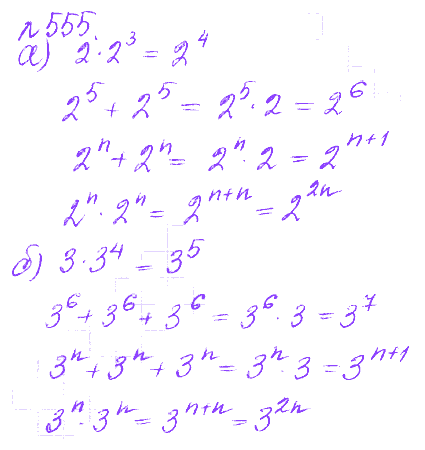 №555.
а) 2·2³ = 2⁴
2⁵ + 2⁵ = 2⁵·2 = 2⁶
2ⁿ + 2ⁿ = 2ⁿ·2 = 2ⁿ⁺¹
2ⁿ·2ⁿ = 2ⁿ⁺ⁿ = 2²ⁿ
б) 3·3⁴ = 3⁵
3⁶ + 3⁶ + 3⁶ = 3⁶·3 = 3⁷
3ⁿ + 3ⁿ + 3ⁿ = 3ⁿ·3 = 3ⁿ⁺¹
3ⁿ·3ⁿ = 3ⁿ⁺ⁿ = 3²ⁿ